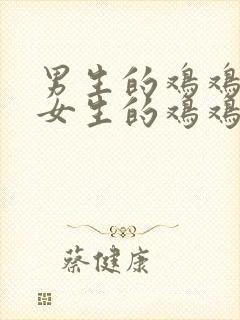 男生的鸡鸡
女生的鸡鸡
蔡健康